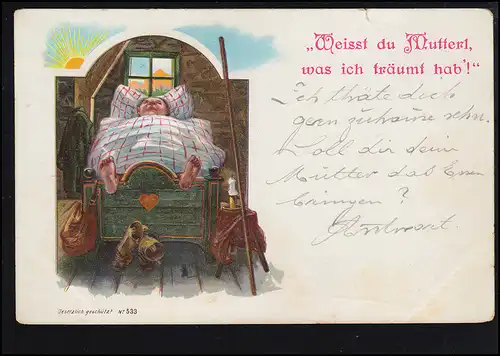 „Weisst du Mutterl,
was ich träumt hab'!“
Ich thäte dich
gern zuhause sehn.
Soll dir dein
Mutter das Essen
bringen?
Antwort
Gesetzlich geschützt! Nº 533